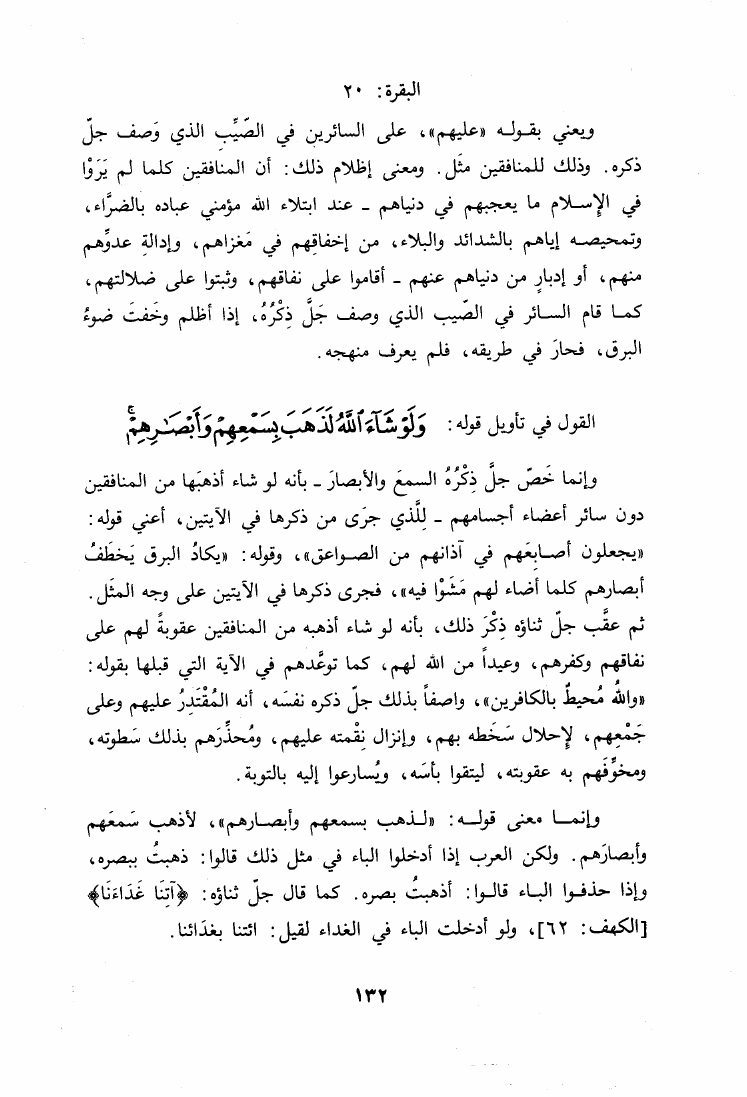 البقرة: ٢٠
ويعني بقـولـه «عليهم»، على السائرين في الصَّيِّب الذي وَصف جلّ
ذكره. وذلك للمنافقين مثَل. ومعنى إظلام ذلك: أن المنافقين كلما لم يَرَوْا
في الإسـلام ما يعجبهم في دنياهم ـ عند ابتلاء الله مؤمني عباده بالضرَّاء،
وتمحيصـه إياهم بالشدائد والبلاء، من إخفاقِهم في مَغزاهم، وإدالةِ عدوِّهم
منهم، أو إدبارٍ من دنياهم عنهم ـ أقاموا على نفاقهم، وثبتوا على ضلالتهم،
كمـا قام السـائر في الصّيب الذي وصف جَلَّ ذِكْرُهُ، إذا أظلم وخَفتَ ضوءُ
البرق، فحارَ في طريقه، فلم يعرف منهجه.
القول في تأويل قوله: وَلَوْ شَآءَ ٱللَّهُ لَذَهَبَ بِسَمْعِهِمْ وَأَبْصَـٰرِهِمْۚ
وإنما خَصّ جلَّ ذِكْرُهُ السمعَ والأبصارَ ـ بأنه لو شاء أذهبَها من المنافقين
دون سائر أعضاء أجسامهم ـ لِلَّذي جرَى من ذكرها في الآيتين، أعني قوله:
«يجعلون أصـابعَهم في آذانهم من الصـواعق»، وقوله: «يكادُ البرق يَخطَفُ
أبصارهم كلما أضاء لهم مَشَوْا فيه»، فجرى ذكرها في الآيتين على وجه المثَل.
ثم عقَّب جلّ ثناؤه ذِكْرَ ذلك، بأنه لو شاء أذهبه من المنافقين عقوبةً لهم على
نفاقهم وكفرهم، وعيداً من الله لهم، كما توعَّدهم في الآية التي قبلها بقوله:
«واللهُ مُحيطٌ بالكافرين»، واصفاً بذلك جلّ ذكره نفسَه، أنه المُقْتَدِرُ عليهم وعلى
جَمْعِهم، لإحلال سَخَطه بهم، وإنزال نِقْمته عليهم، ومُحذِّرَهم بذلك سَطوته،
ومخوِّفَهم به عقوبته، ليتقوا بأسَه، ويُسارعوا إليه بالتوبة.
وإنمـا معنى قولـه: «لـذهب بسمعهم وأبصـارهم»، لأذهب سَمعَهم
وأبصارَهم. ولكن العرب إذا أدخلوا الباء في مثل ذلك قالوا: ذهبتُ ببصره،
وإذا حذفـوا البـاء قالـوا: أذهبتُ بصره. كما قال جلّ ثناؤه: ﴿آتِنَا غَدَاءَنَا﴾
[الكهف: ٦٢]، ولو أدخلت الباء في الغداء لقيل: ائتنا بغدَائنا.
١٣٢